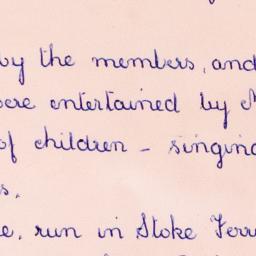 by the members, and
were entertained by
of children - singing
s.
e, run in Stoke Ferr